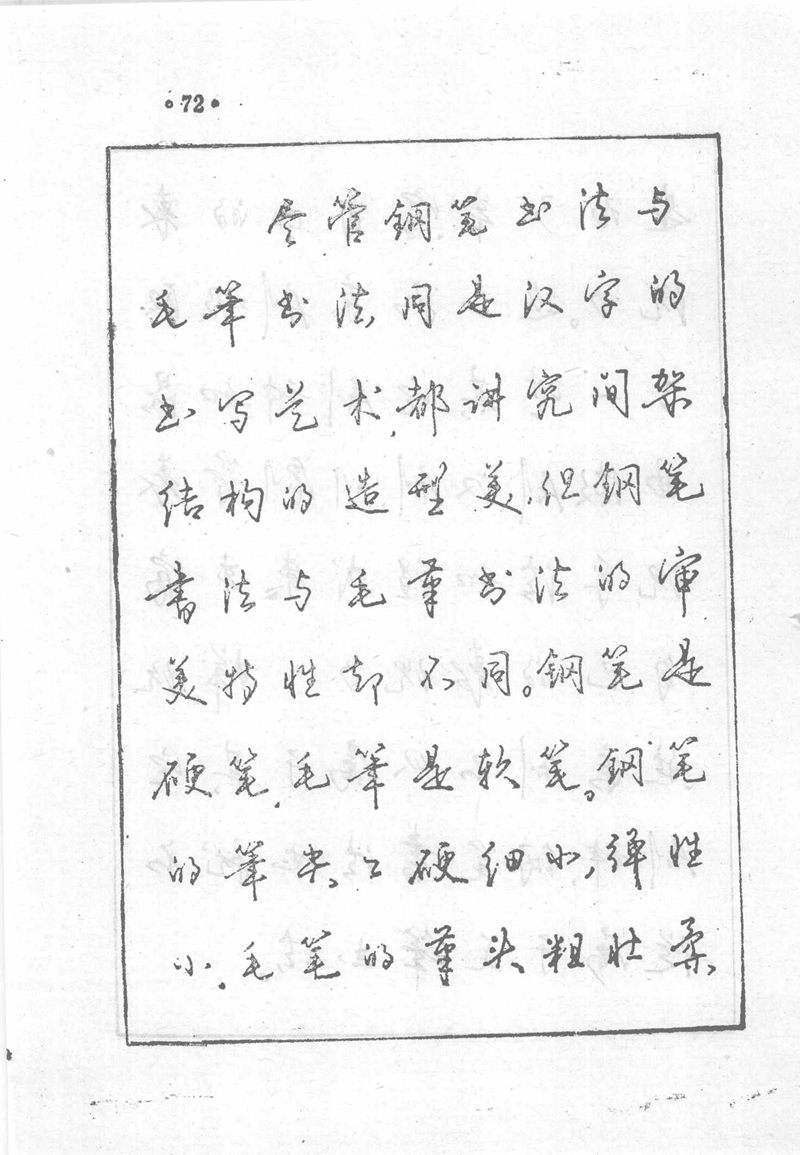 ·72·
尽管钢笔书法与
毛笔书法同是汉字的
书写艺术,都讲究间架
结构的造型美,但钢笔
书法与毛筆书法的审
美特性却不同。钢笔是
硬笔,毛筆是软笔。钢笔
的筆尖坚硬细小,弹性
小,毛笔的筆头粗壮柔